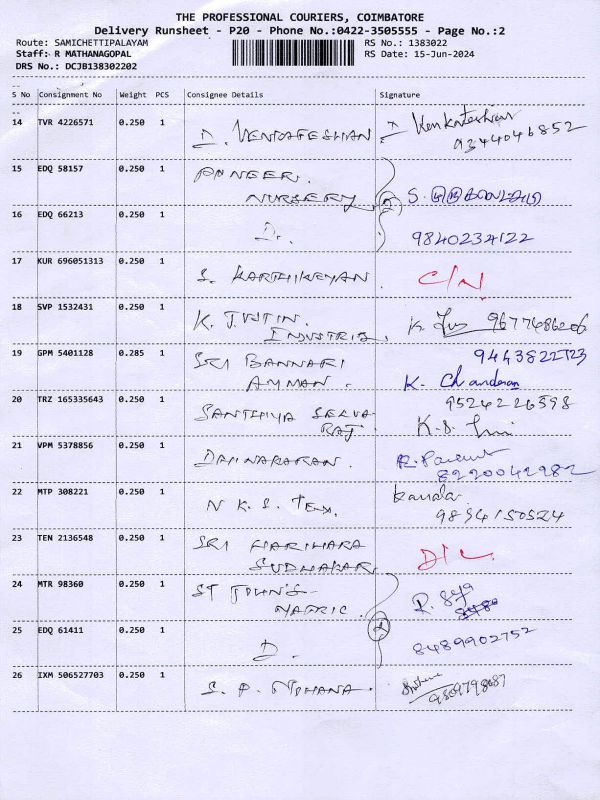 THE PROFESSIONAL COURIERS, COIMBATORE
Delivery Runsheet - P20 - Phone No.:0422-3505555 - Page No.:2
Route: SAMICHETTIPALAYAM
RS No.: 1383022
Staff: R MATHANAGOPAL
RS Date: 15-Jun-2024
DRS No.: DCJB138302202
S No Consignment No Weight PCS Consignee Details Signature
14 TVR 4226571 0.250 1 D. VENKATESHWAN Venkateshwar
9344046852
15 EDQ 58157 0.250 1 PIONEER
NURSERY 2 S.
16 EDQ 66213 0.250 1 D. 9840234122
17 KUR 696051313 0.250 1 S. KARTHIKEYAN. C/N
18 SVP 1532431 0.250 1 K. JUSTIN
INDUSTRIES, K. 9677486206
19 GPM 5401128 0.285 1 SRI BANNARI 9443822723
AMMAN. K. Chandran
20 TRZ 165335643 0.250 1 SANTHIYA SELVA 9524226598
RAJ. K.S.
21 VPM 5378856 0.250 1 R.
8220042982
22 MTP 308221 0.250 1 N K. S. TEX.
9894150524
23 TEN 2136548 0.250 1 SRI HARIHARA
SUDHAKAR, D/L
24 MTR 98360 0.250 1 ST JOHN'S R.
25 EDQ 61411 0.250 1 D. 2 8489902752
26 IXM 506527703 0.250 1 S. P.